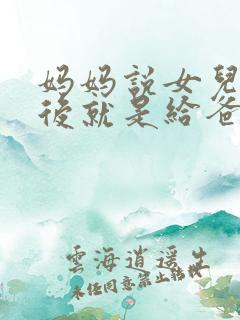 妈妈說女兒
後就是給爸
雲海逍遥生
未经同意禁止转载